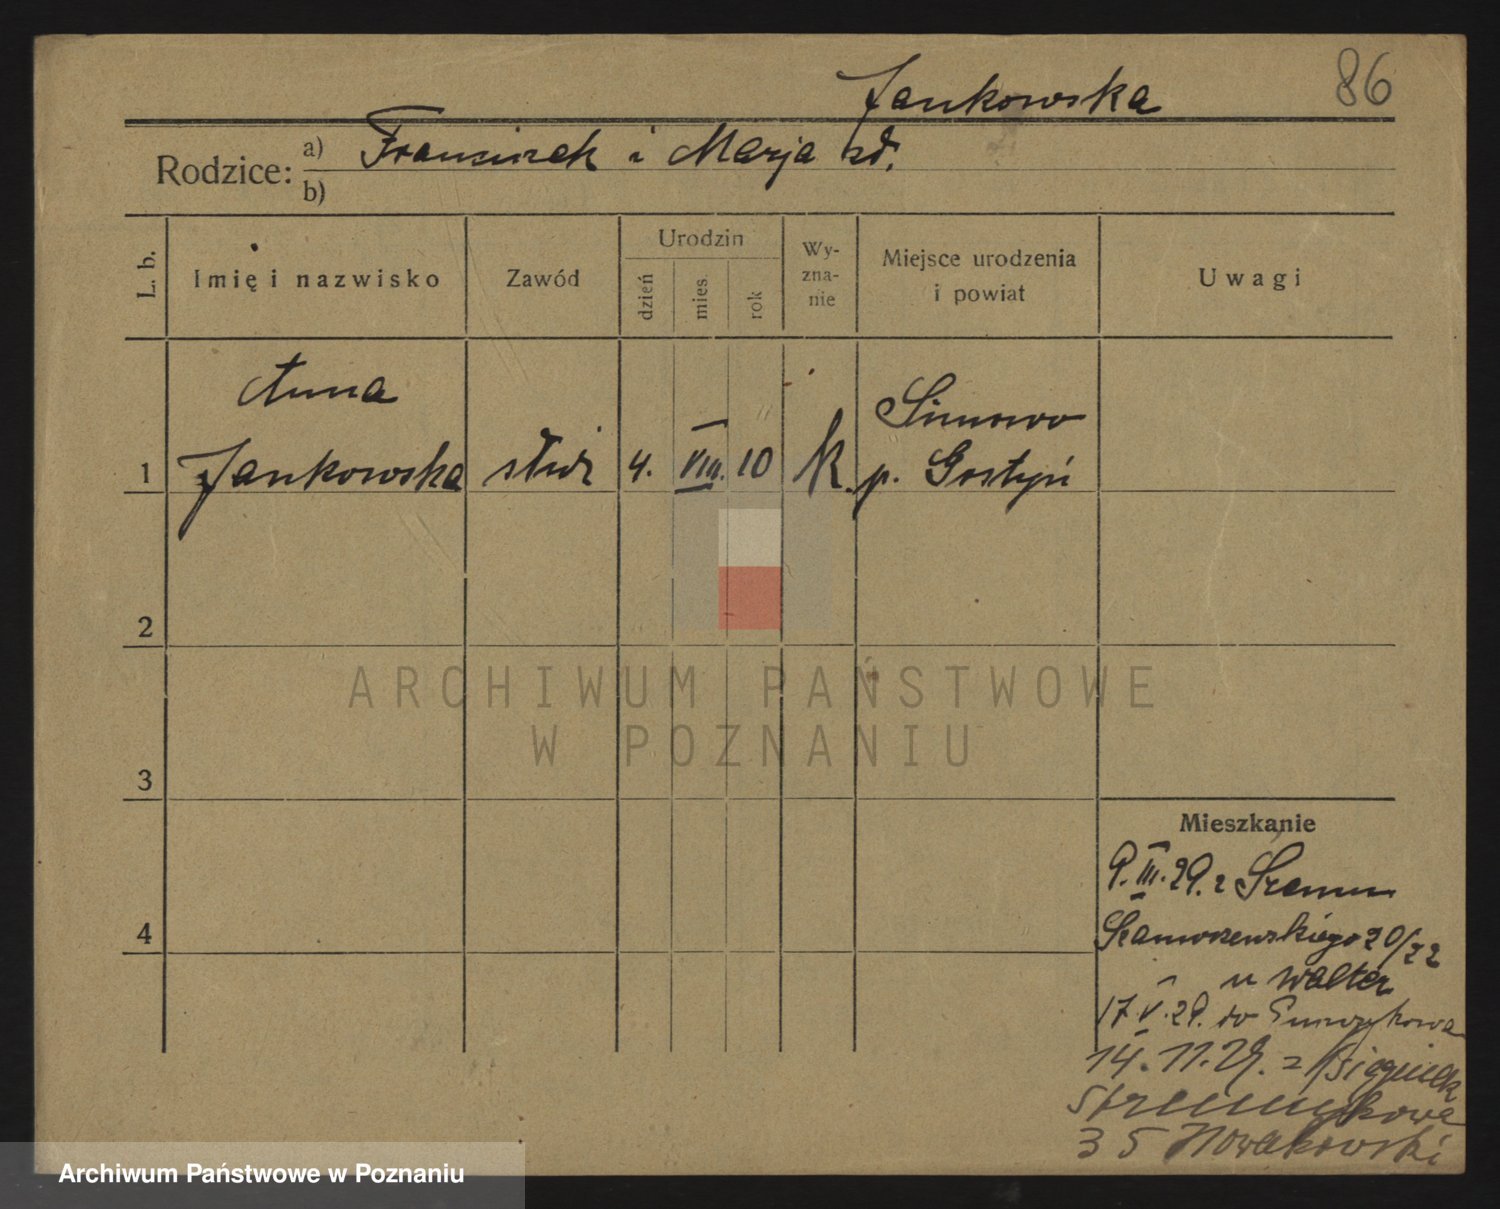 86
Jankowska
Rodzice: a) Franciszek i Marja zd.
b)
L. b.
Imię i nazwisko
Zawód
Urodzin
dzień
mies.
rok
Wy-
zna-
nie
Miejsce urodzenia
i powiat
Uwagi
Anna
1 Jankowska
służ
4.
VIII.
10
k.
Simowo
p. Gostyń
2
3
4
ARCHIWUM PAŃSTWOWE
W POZNANIU
Mieszkanie
9. III. 29. z Szamo
Szamarzewskiego 20/22
u Walter
17 V. 29. do
14. 11. 29. z
Strumykowa
35 Nowakowski
Archiwum Państwowe w Poznaniu